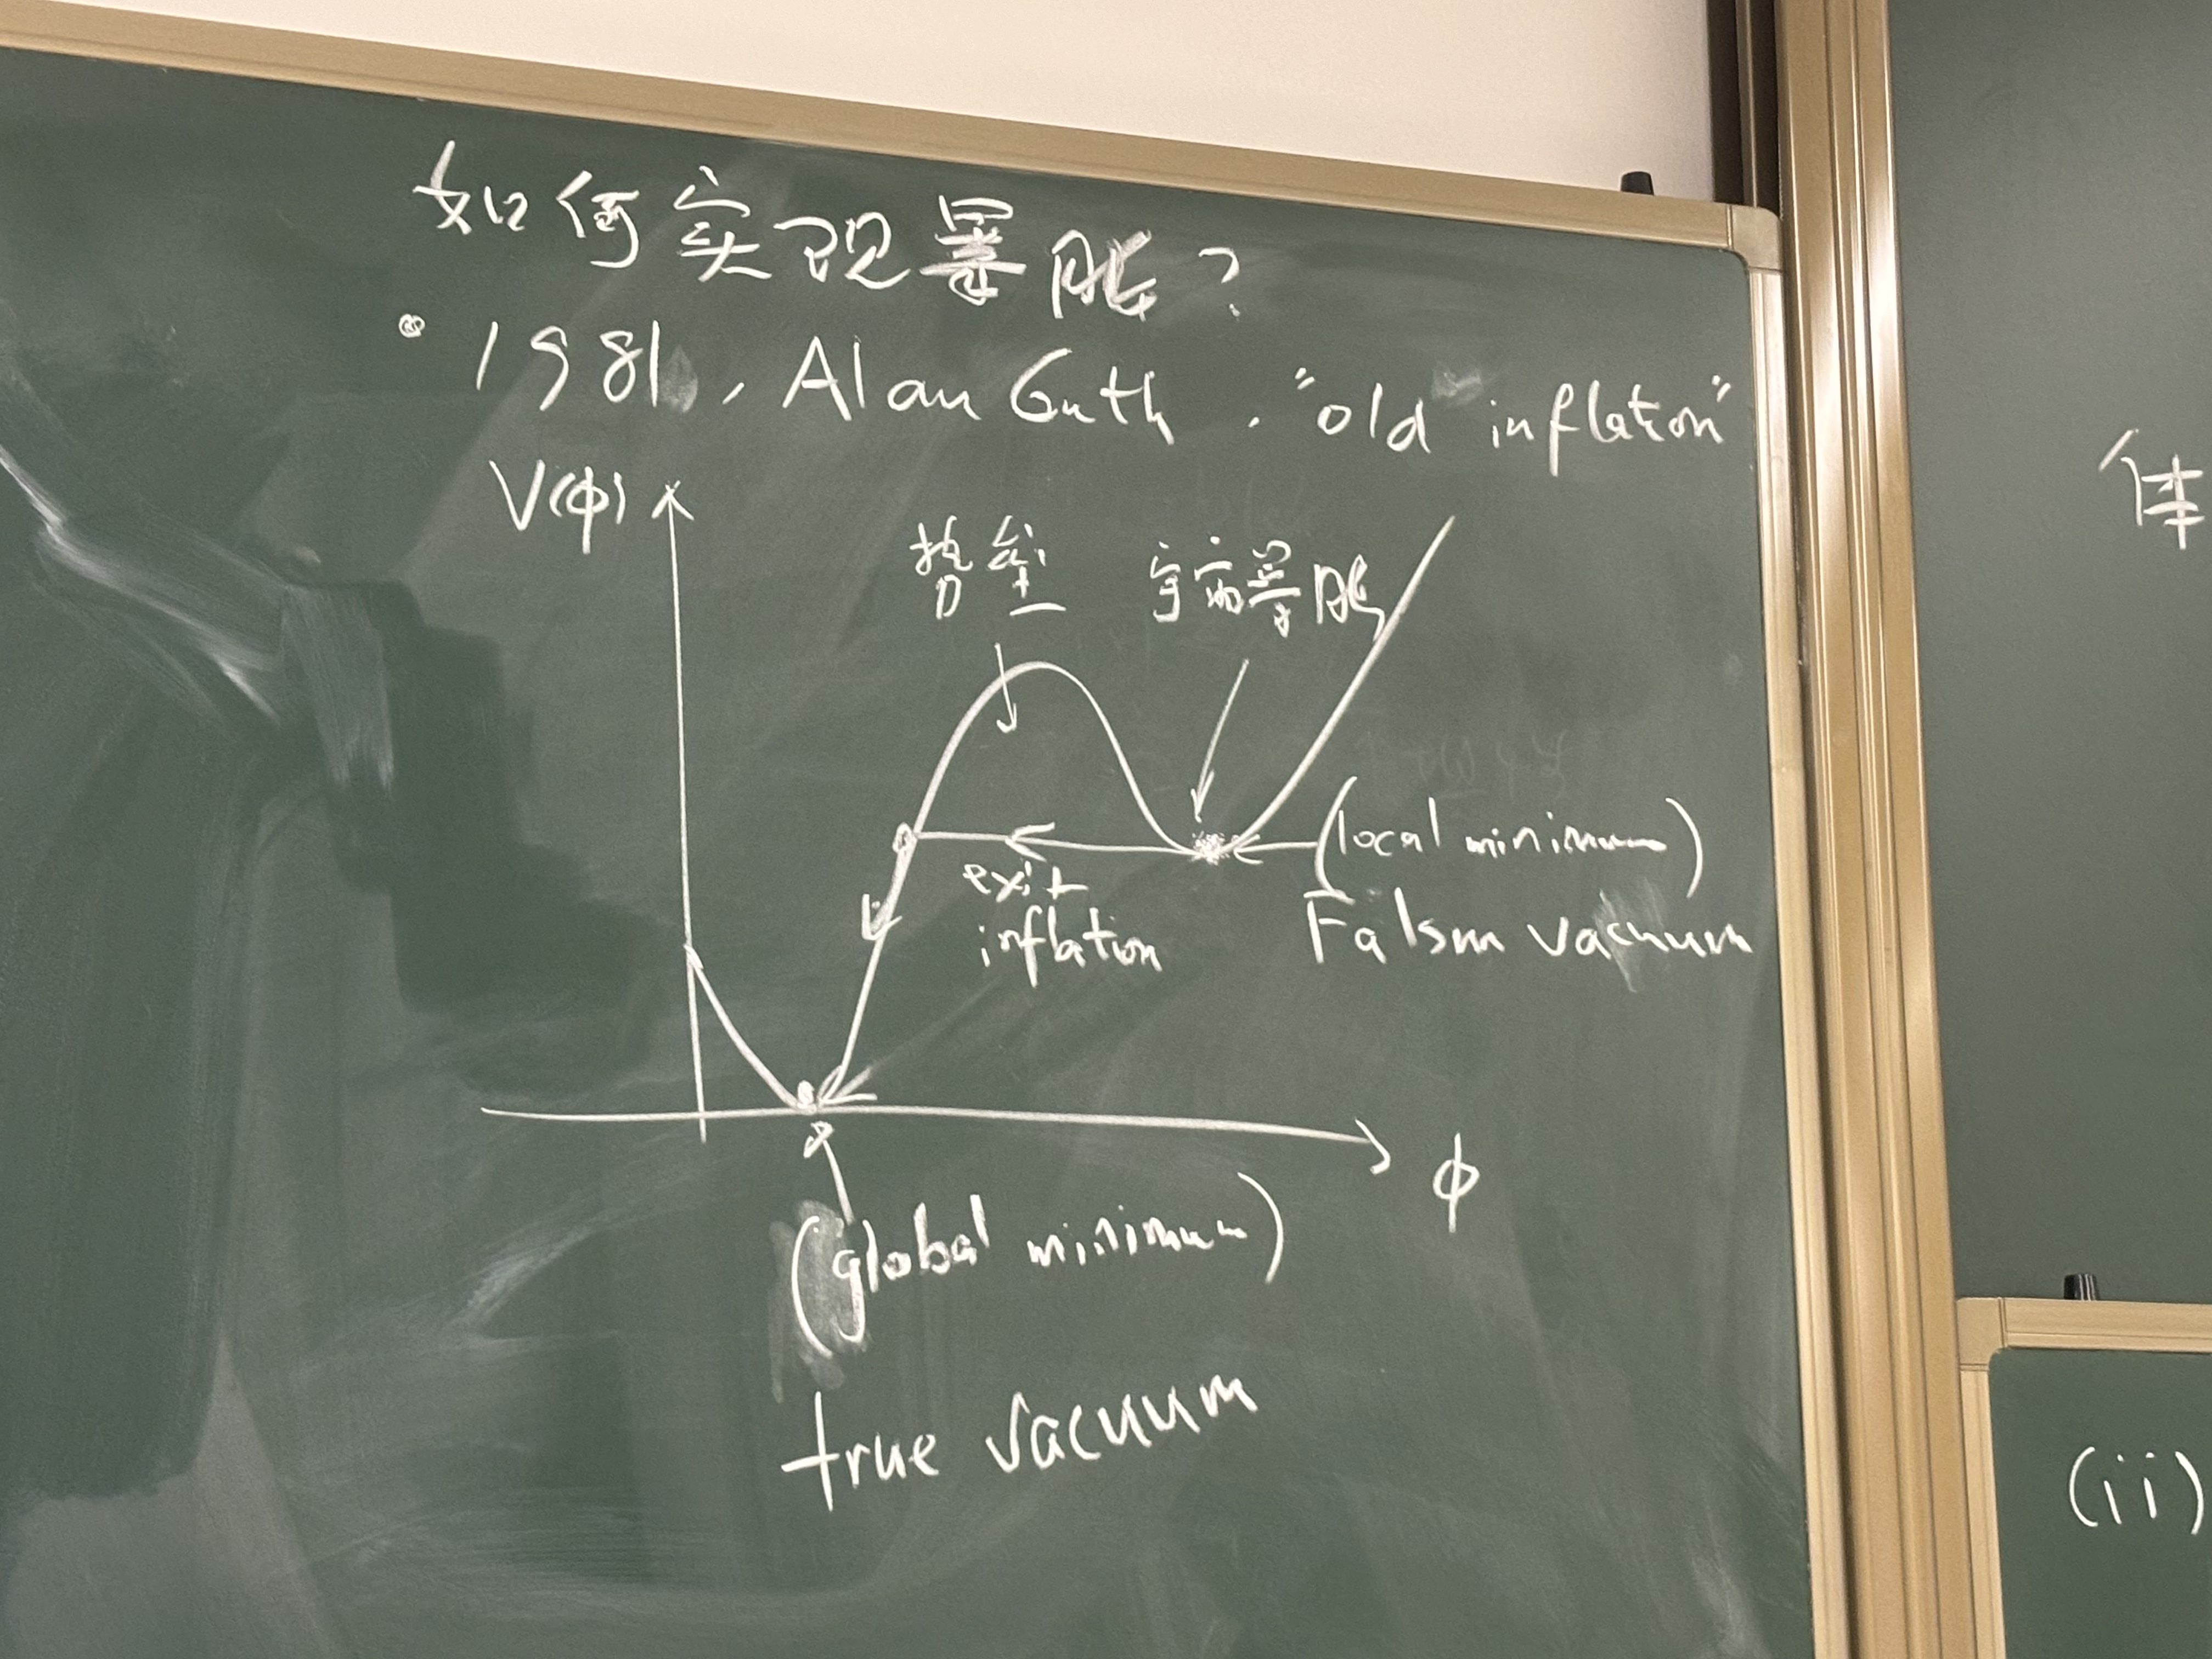 如何实现暴胀?
• 1981, Alan Guth, "old inflation"
V(φ)
势垒
宇宙暴胀
exit
inflation
(local minimum)
Falsm vacuum
φ
(global minimum)
true vacuum
体
(ii)